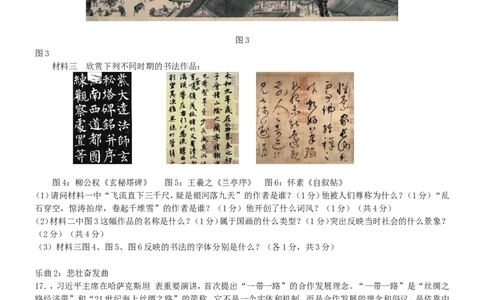 图3
图3
材料三 欣赏下列不同时期的书法作品:
紫大达法师玄
秘塔碑铭并序
江南西道都团
练观察处置等
图4：柳公权《玄秘塔碑》 图5：王羲之《兰亭序》 图6：怀素《自叙帖》
(1)请问材料一中“飞流直下三千尺，疑是银河落九天”的作者是谁？(1分)他被人们尊称为什么？(1分)“乱
石穿空，惊涛拍岸，卷起千堆雪”的作者是谁？(1分)他开创了什么词风？(1分)（共4分）
(2)材料二中图3这幅作品的名称是什么？(1分)属于国画的什么类型？(1分)突出反映当时社会的什么景象？
(2分)（共4分）
（3）材料三图4、图5、图6反映的书法的字体分别是什么？（各1分，共3分）
乐曲2：悲壮奋发曲
17.，习近平主席在哈萨克斯坦 表重要演讲，首次提出“一带一路”的合作发展理念。“一带一路”是“丝绸之
路经济带”和“21世纪海上丝绸之路”的简称，它不是一个实体和机制，而是合作发展的理念和倡议，是依靠中